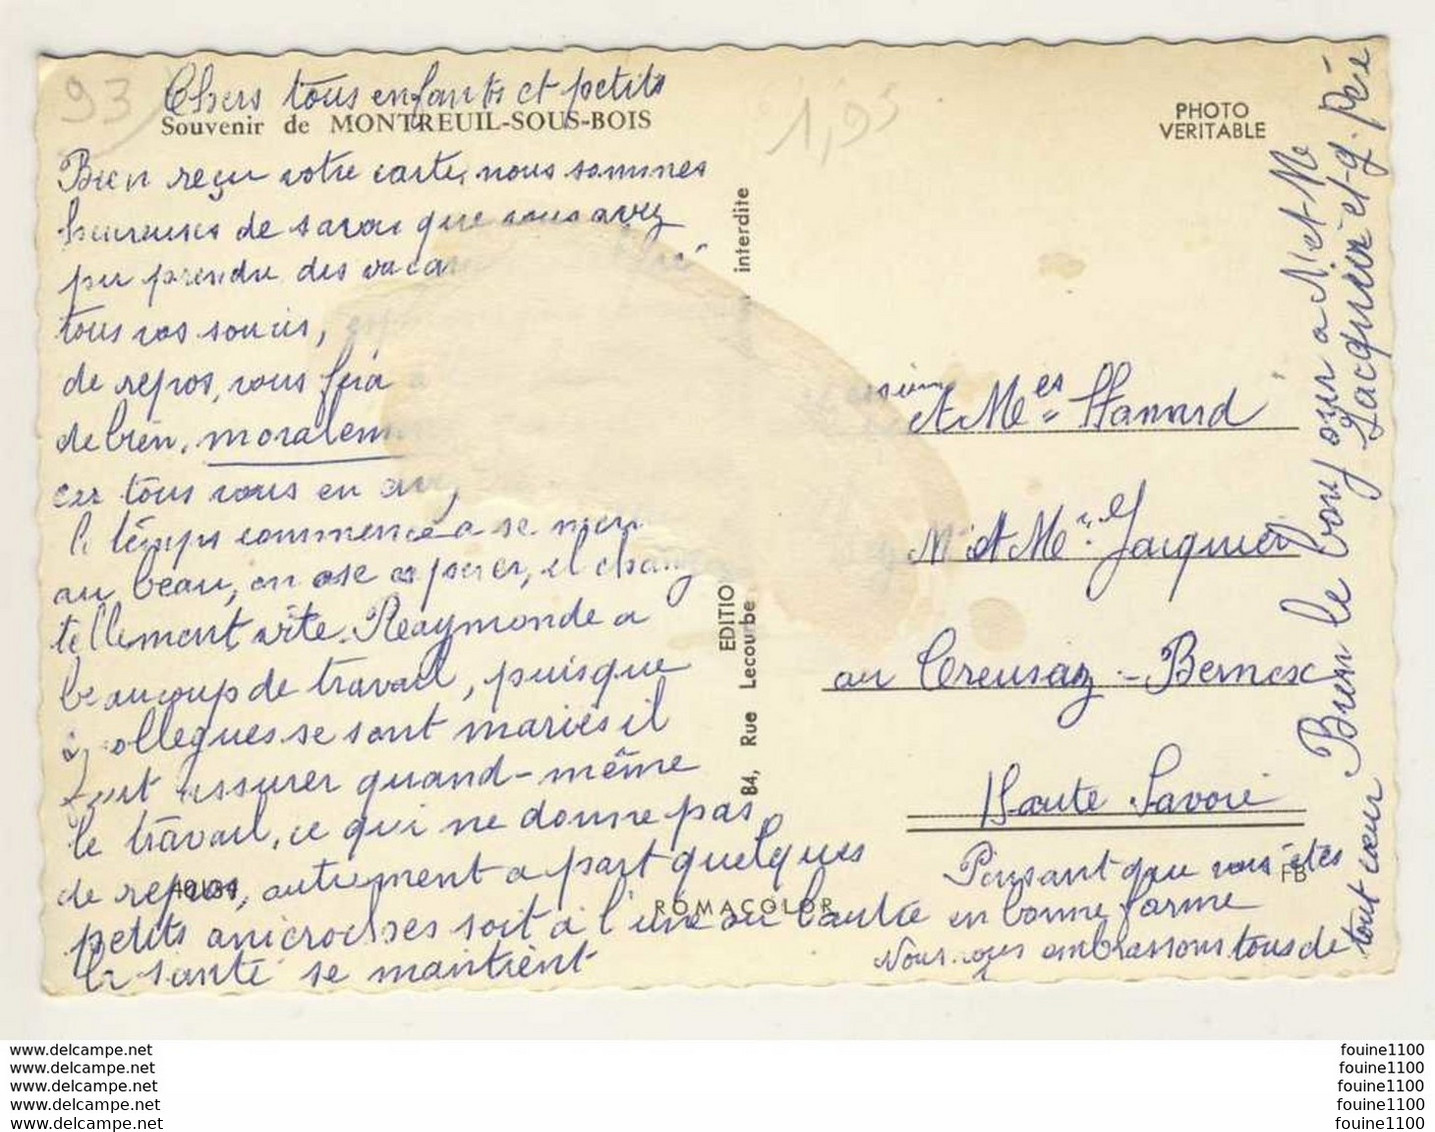 93
Chers tous enfants et petits
Souvenir de MONTREUIL-SOUS-BOIS
1,95
PHOTO
VERITABLE
Bien reçu votre carte, nous sommes
heureuses de savoir que vous avez
pu prendre des vaca
tous vos soucis,
de repos, vous fera
de bien, moralem
car tous vous en avez
le temps commence a se me
au beau, on ose espérer, il chang
tellement vite. Reaymonde a
beaucoup de travail, puisque
collegues se sont mariés il
faut assurer quand-même
le travail, ce qui ne donne pas
de repos, autrement a part quelques
petits anicroches soit à l'une ou l'autre
la santé se maintient
interdite
EDITIO
84, Rue Lecourbe
ROMACOLOR
FB
et Mes Hannard
Mr et Me Jacquier
au Creusaz - Bernex
Haute Savoie
Pensant que vous êtes
en bonne forme
Nous vous embrassons tous de
tout cœur Bien le bonjour a M et Me
Jacquier et g. Père
www.delcampe.net
www.delcampe.net
www.delcampe.net
www.delcampe.net
www.delcampe.net
fouine1100
fouine1100
fouine1100
fouine1100
fouine1100